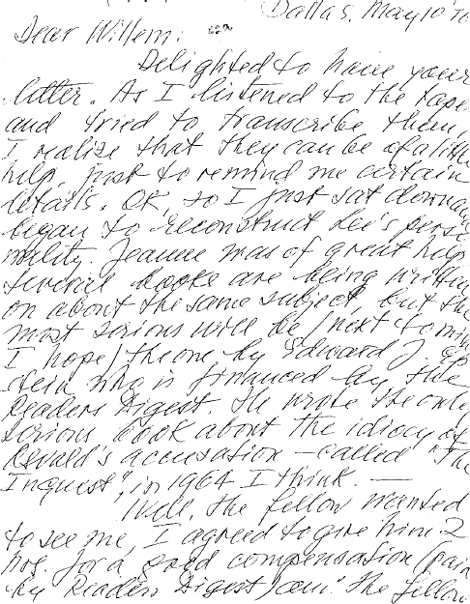 Dallas, May 10 '76
Dear Willem:
Delighted to have your
letter. As I listened to the tape
and tried to transcribe them,
I realize that they can be of a little
help, just to remind me certain
details. OK, so I just sat down and
began to reconstruct Lee's perso
nality. Jeanne was of great help
Several books are being written
on about the same subject, but the
most serious will be /next to mine
I hope/ the one by Edward J. Ep
stein who is financed by the
Readers Digest. He wrote the only
serious book about the idiocy of
Oswald's accusation — called "The
Inquest", in 1964 I think. —
Well, the fellow wanted
to see me, I agreed to give him 2
hrs. for a good compensation (paid
by Readers Digest) The fellow